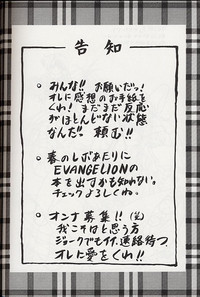 告知
・みんな!! お願いだッ!
オレに感想のお手紙を
くれ! まだまだ反応
がほとんどない状態
なんだ!! 頼む!!
・春のしぶあたりに
EVANGELIONの
本を出すかも知れない。
チェックよろしくね。
・オンナ募集!!(笑)
我こそはと思う方
ジョークでもイイ、連絡待つ
オレに愛をくれ!!